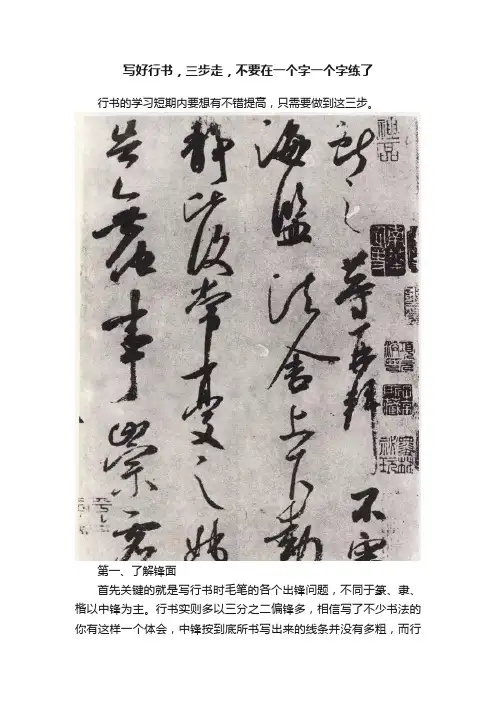 写好行书，三步走，不要在一个字一个字练了
行书的学习短期内要想有不错提高，只需要做到这三步。
神品
獻之等再拜不審
海鹽諸舍上下動
靜比復常憂之姊
告無他事崇虛
第一、了解锋面
首先关键的就是写行书时毛笔的各个出锋问题，不同于篆、隶、
楷以中锋为主。行书实则多以三分之二偏锋多，相信写了不少书法的
你有这样一个体会，中锋按到底所书写出来的线条并没有多粗，而行